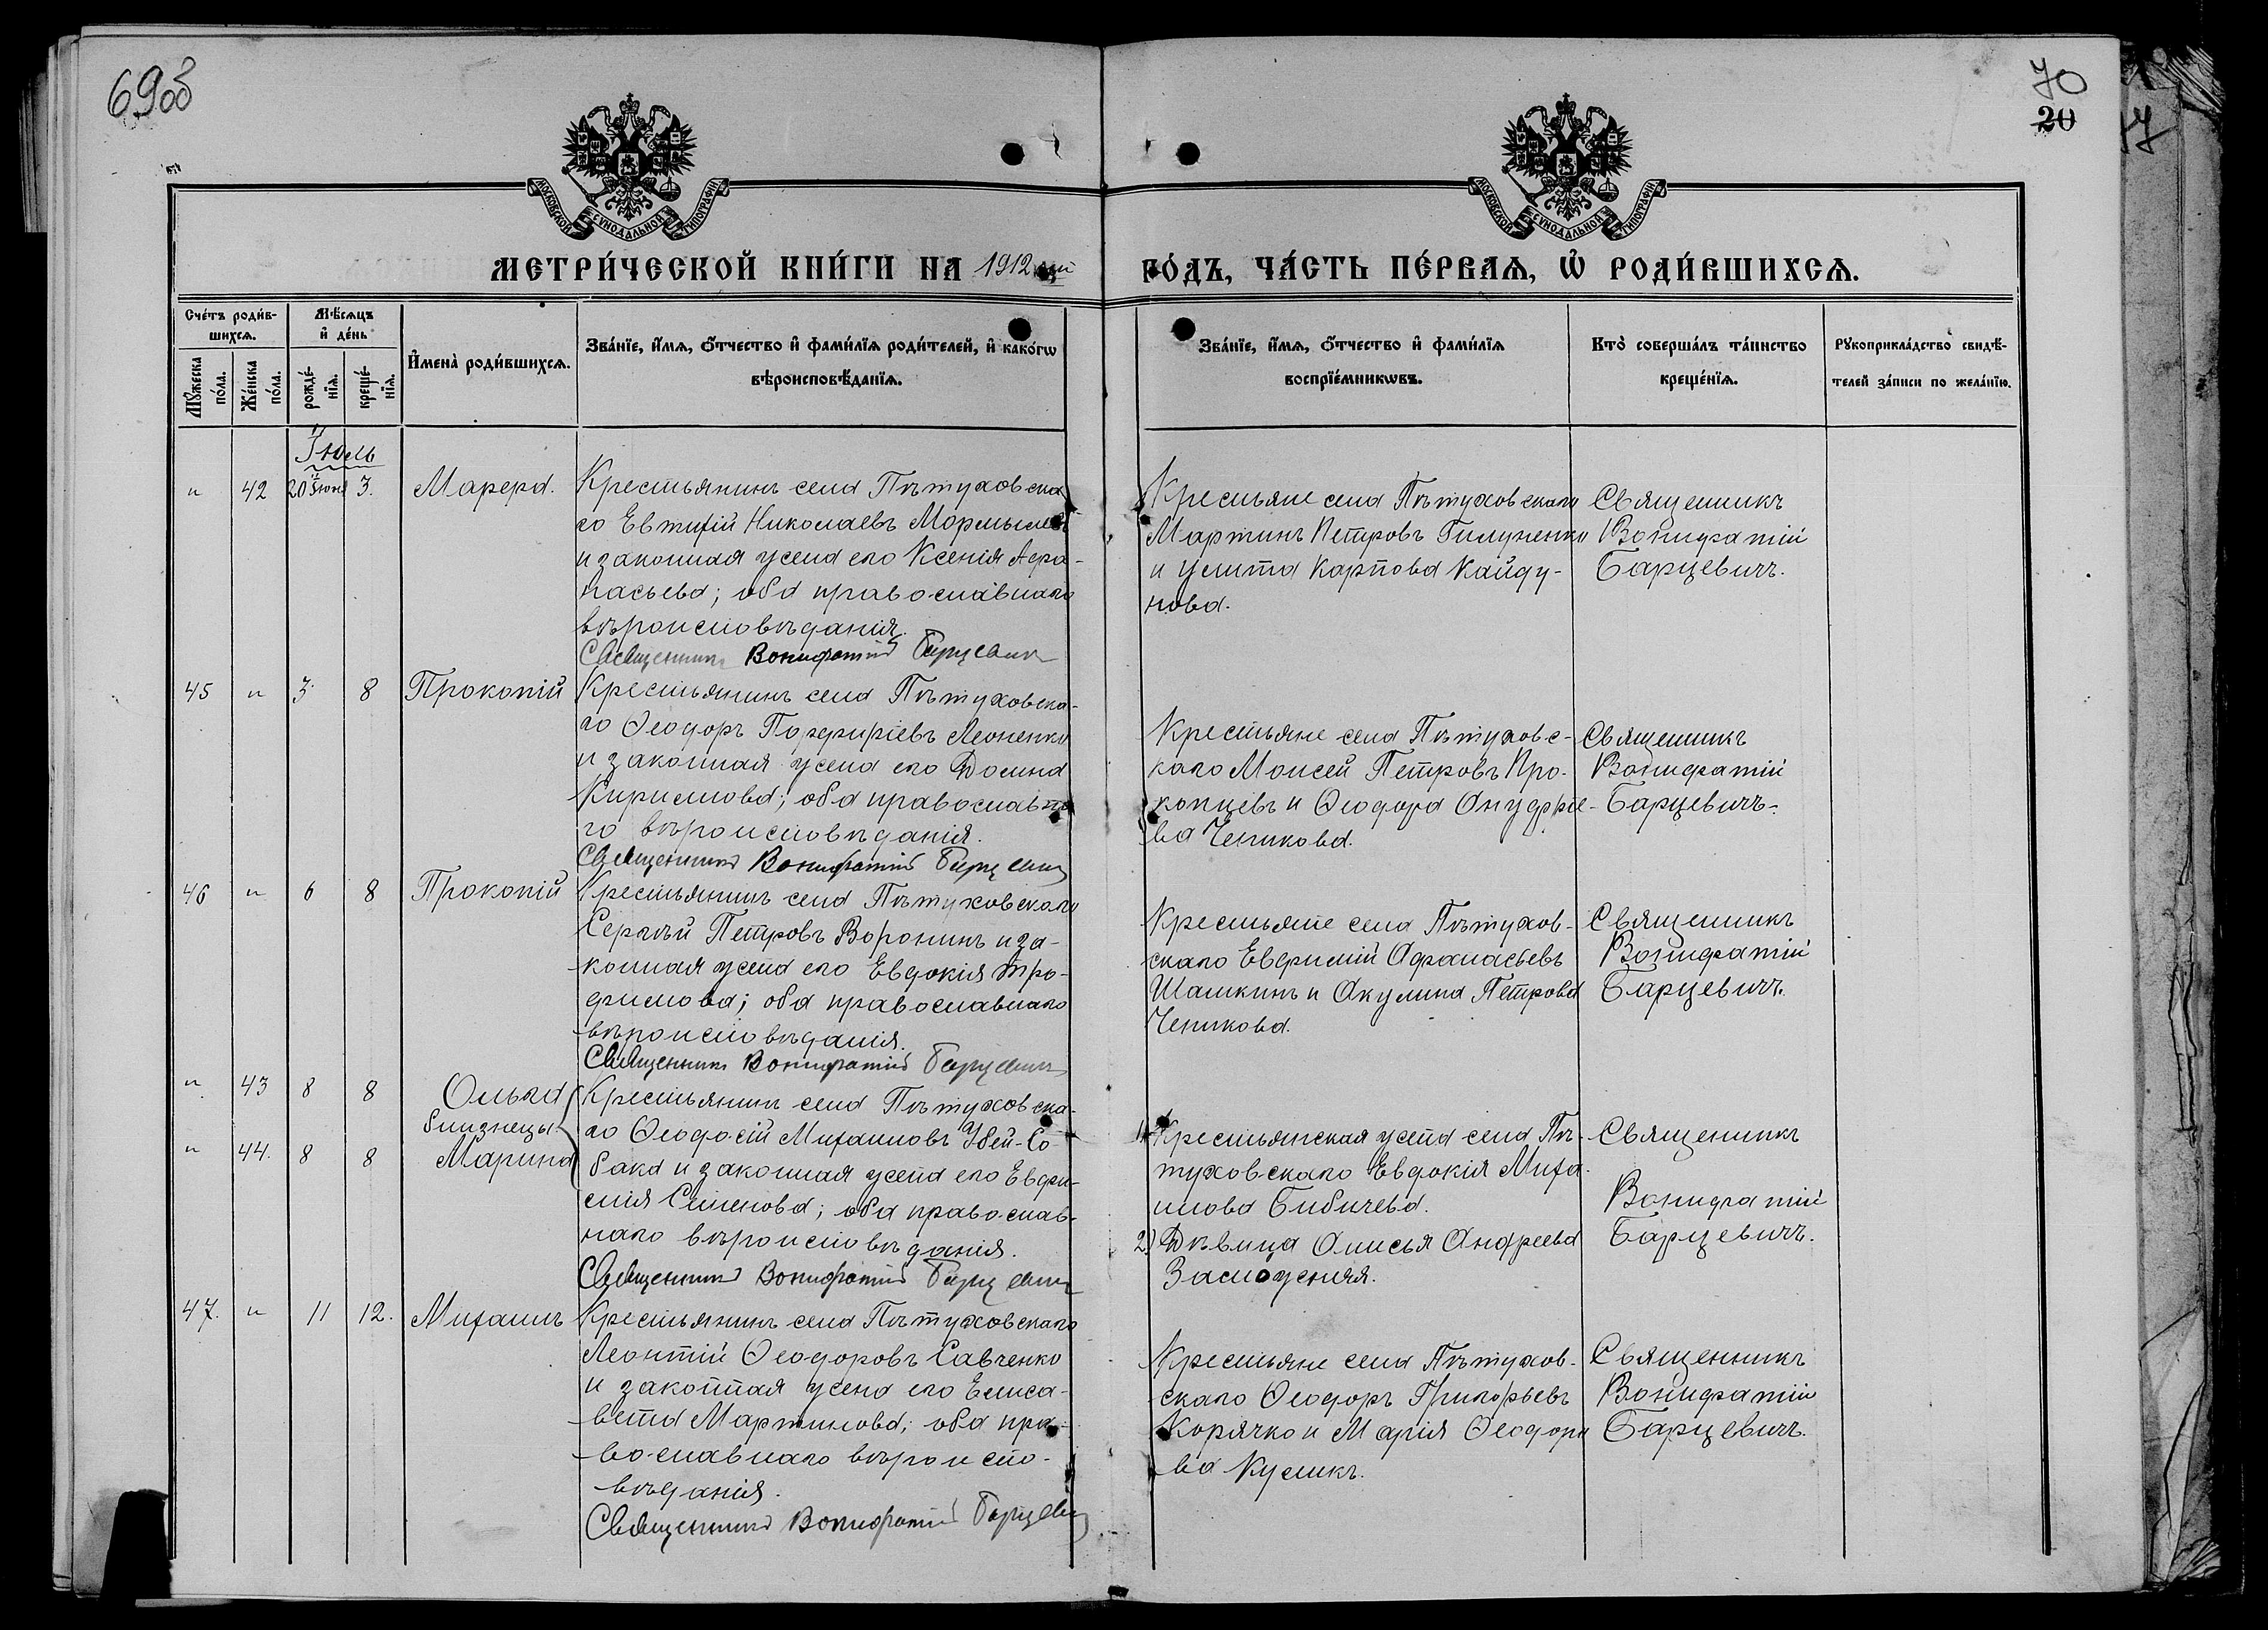 69 об
70
20
МОСКОВСКОЙ СѴНОДАЛЬНОЙ ТИПОГРАФІИ
МОСКОВСКОЙ СѴНОДАЛЬНОЙ ТИПОГРАФІИ
МЕТРИ́ЧЕСКОЙ КНИ́ГИ НА 1912 ый
ГО́ДЪ, ЧА́СТЬ ПЕ́РВАѦ, Ѽ РОДИ́ВШИХСѦ.
Сче́тъ роди́в-
шихсѧ.
Мꙋ́жеска
по́ла.
Же́нска
по́ла.
Мѣ́сѧцъ
и҆ де́нь
рожде́-
нїѧ.
креще́-
нїѧ.
И҆мена̀ роди́вшихсѧ.
Зва́нїе, и҆́мѧ, ѻ҆́тчество и҆ фами́лїѧ роди́телей, и҆ како́гѡ
вѣроисповѣ́данїѧ.
Зва́нїе, и҆́мѧ, ѻ҆́тчество и҆ фами́лїѧ
воспрїе́мникѡвъ.
Кто̀ соверша́лъ та́инство
креще́нїѧ.
Рꙋкоприкла́дство свидѣ́-
телей за́писи по жела́нїю.
Іюль
" 42 20 Іюня 3. Марѳа.
Крестьянинъ села Пѣтуховска
го Евтихій Николаевъ
и законная жена его Ксенія Аѳа-
насьева; оба православнаго
вѣроисповѣданія.
Священникъ Вонифатій Барцевичъ
Крестьяне села Пѣтуховскаго
Мартинъ Петровъ
и Улита Карпова Кайду-
нова.
Священникъ
Вонифатій
Барцевичъ.
45 " 3 8 Прокопій
Крестьянинъ села Пѣтуховска-
го Ѳеодоръ Порфиріевъ Леоненко
и законная жена его Домна
Кириллова; оба православна
го вѣроисповѣданія.
Священникъ Вонифатій Барцевичъ
Крестьяне села Пѣтуховс-
каго Моисей Петровъ Про-
копцевъ и Ѳеодора Онуфріе-
ва Ченикова.
Священникъ
Вонифатій
Барцевичъ.
46 " 6 8 Прокопій
Крестьянинъ села Пѣтуховскаго
Сергѣй Петровъ Воронинъ и за-
конная жена его Евдокія Тро-
фимова; оба православнаго
вѣроисповѣданія.
Священникъ Вонифатій Барцевичъ
Крестьяне села Пѣтухов-
скаго Евфимій Афанасьевъ
Шашкинъ и Акулина Петрова
Ченикова.
Священникъ
Вонифатій
Барцевичъ.
" 43 8 8 Ольга
близнецы.
" 44. 8 8 Марина
Крестьянинъ села Пѣтуховска-
го Ѳеодосій Михаиловъ Убей-Со-
бака и законная жена его Евфи-
мія Семенова; оба православ-
наго вѣроисповѣданія.
Священникъ Вонифатій Барцевичъ
1) Крестьянская жена села Пѣ-
туховскаго Евдокія Миха-
илова Бибичева.
2) Дѣвица Анисья Андреева
Священникъ
Вонифатій
Барцевичъ.
47. " 11 12. Михаилъ
Крестьянинъ села Пѣтуховскаго
Леонтій Ѳеодоровъ Савченко
и законная жена его Елиса-
вета Мартинова; оба пра-
вославнаго вѣроиспо-
вѣданія.
Священникъ Вонифатій Барцевичъ
Крестьяне села Пѣтухов-
скаго Ѳеодоръ Григорьевъ
Корячко и Марія Ѳеодоро
ва Куликъ.
Священникъ
Вонифатій
Барцевичъ.